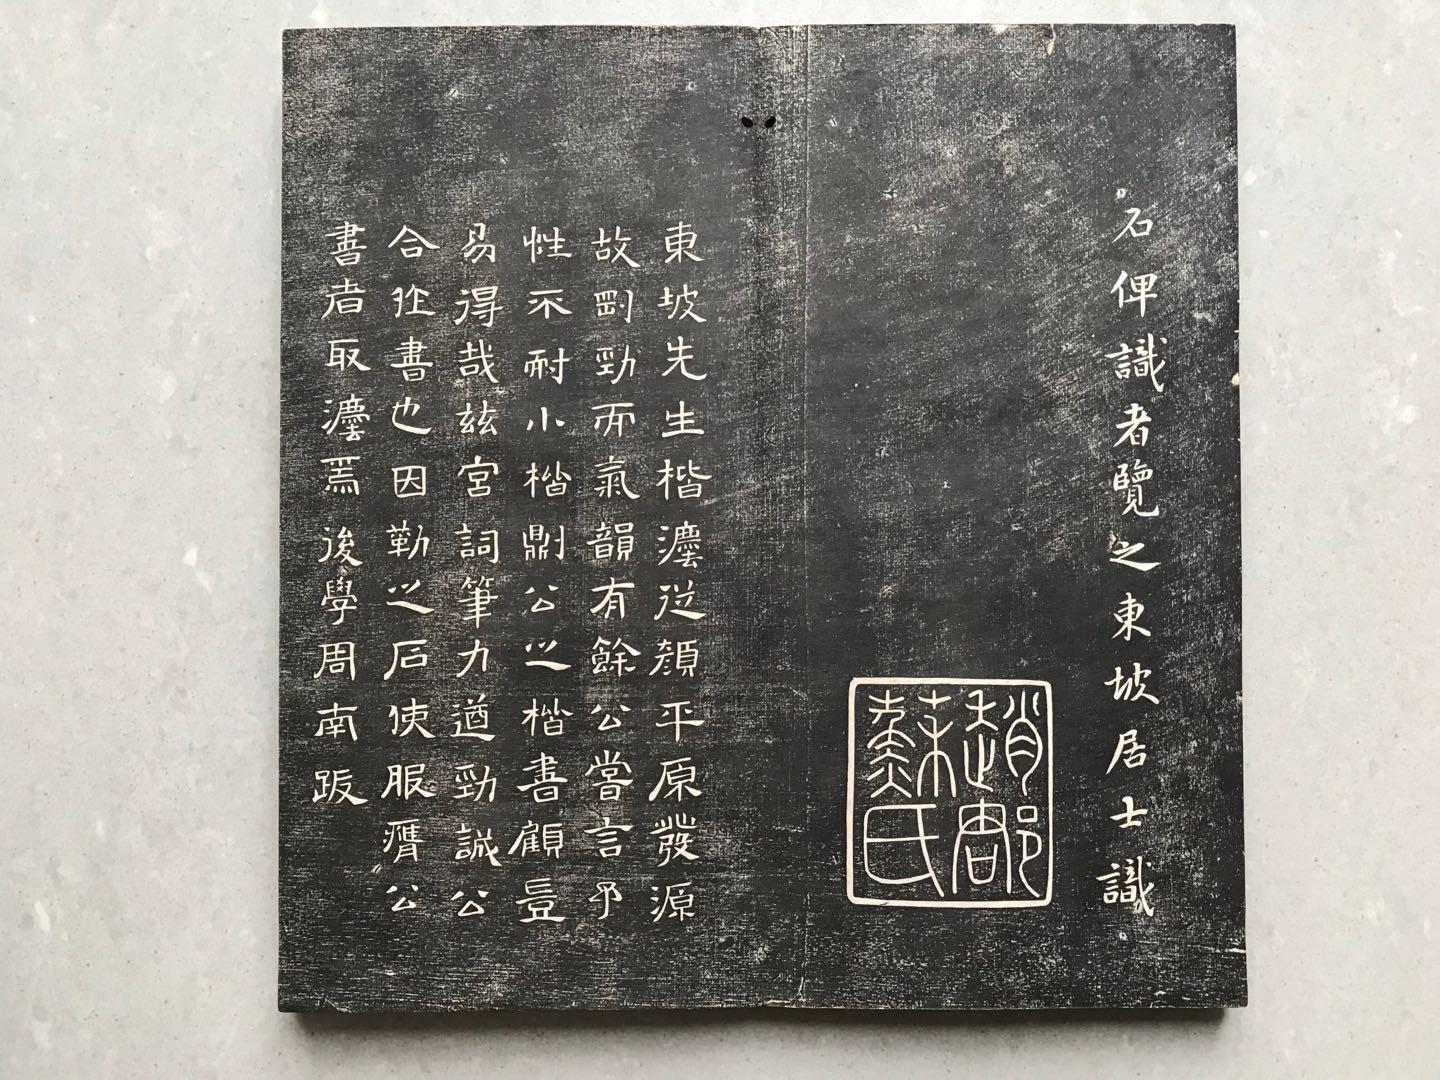 石俾識者覽之東坡居士識
趙郡蘇氏
東坡先生楷灋從顏平原發源
故剛勁而氣韻有餘公嘗言予
性不耐小楷則公之楷書顧豈
易得哉兹宮詞筆力遒勁誠公
合作書也因勒之石使服膺公
書者取灋焉後學周南跋